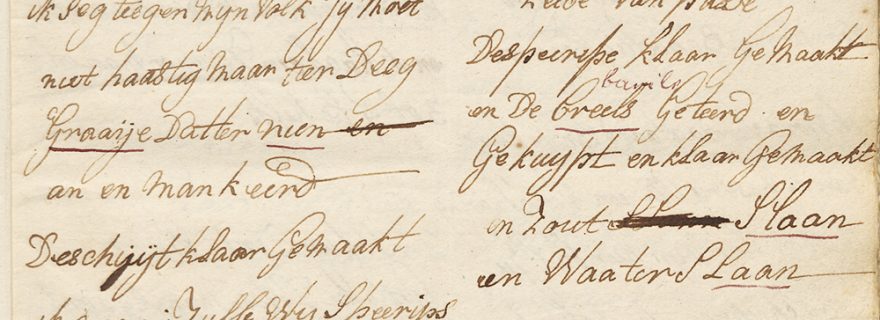 ik seg teegen mijn volk Jy moet
niet haastig maar ter Deeg
Graaije Datter nien en
an en mankeerd
De schuijt klaar Gemaakt
Zulle Wy Speerips
Despeeripe klaar Gemaakt
barils
en De breels Geteerd en
Gekuypt en klaar Gemaakt
in Zout Slaan
en Waater Slaan